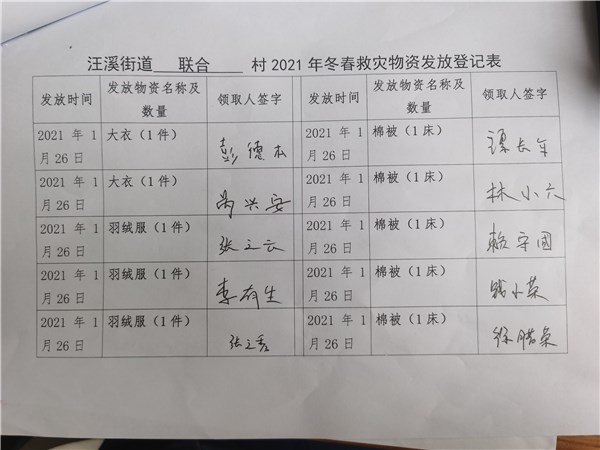 汪溪街道 联合 村 2021 年冬春救灾物资发放登记表
发放时间 发放物资名称及数量 领取人签字 发放时间 发放物资名称及数量 领取人签字
2021 年 1月 26 日 大衣（1 件） 彭德本 2021 年 1月 26 日 棉被（1 床） 长年
2021 年 1月 26 日 大衣（1 件） 兴安 2021 年 1月 26 日 棉被（1 床） 林小六
2021 年 1月 26 日 羽绒服（1 件） 张之云 2021 年 1月 26 日 棉被（1 床） 赖守国
2021 年 1月 26 日 羽绒服（1 件） 李有生 2021 年 1月 26 日 棉被（1 床） 钱小荣
2021 年 1月 26 日 羽绒服（1 件） 张之秀 2021 年 1月 26 日 棉被（1 床） 徐腊